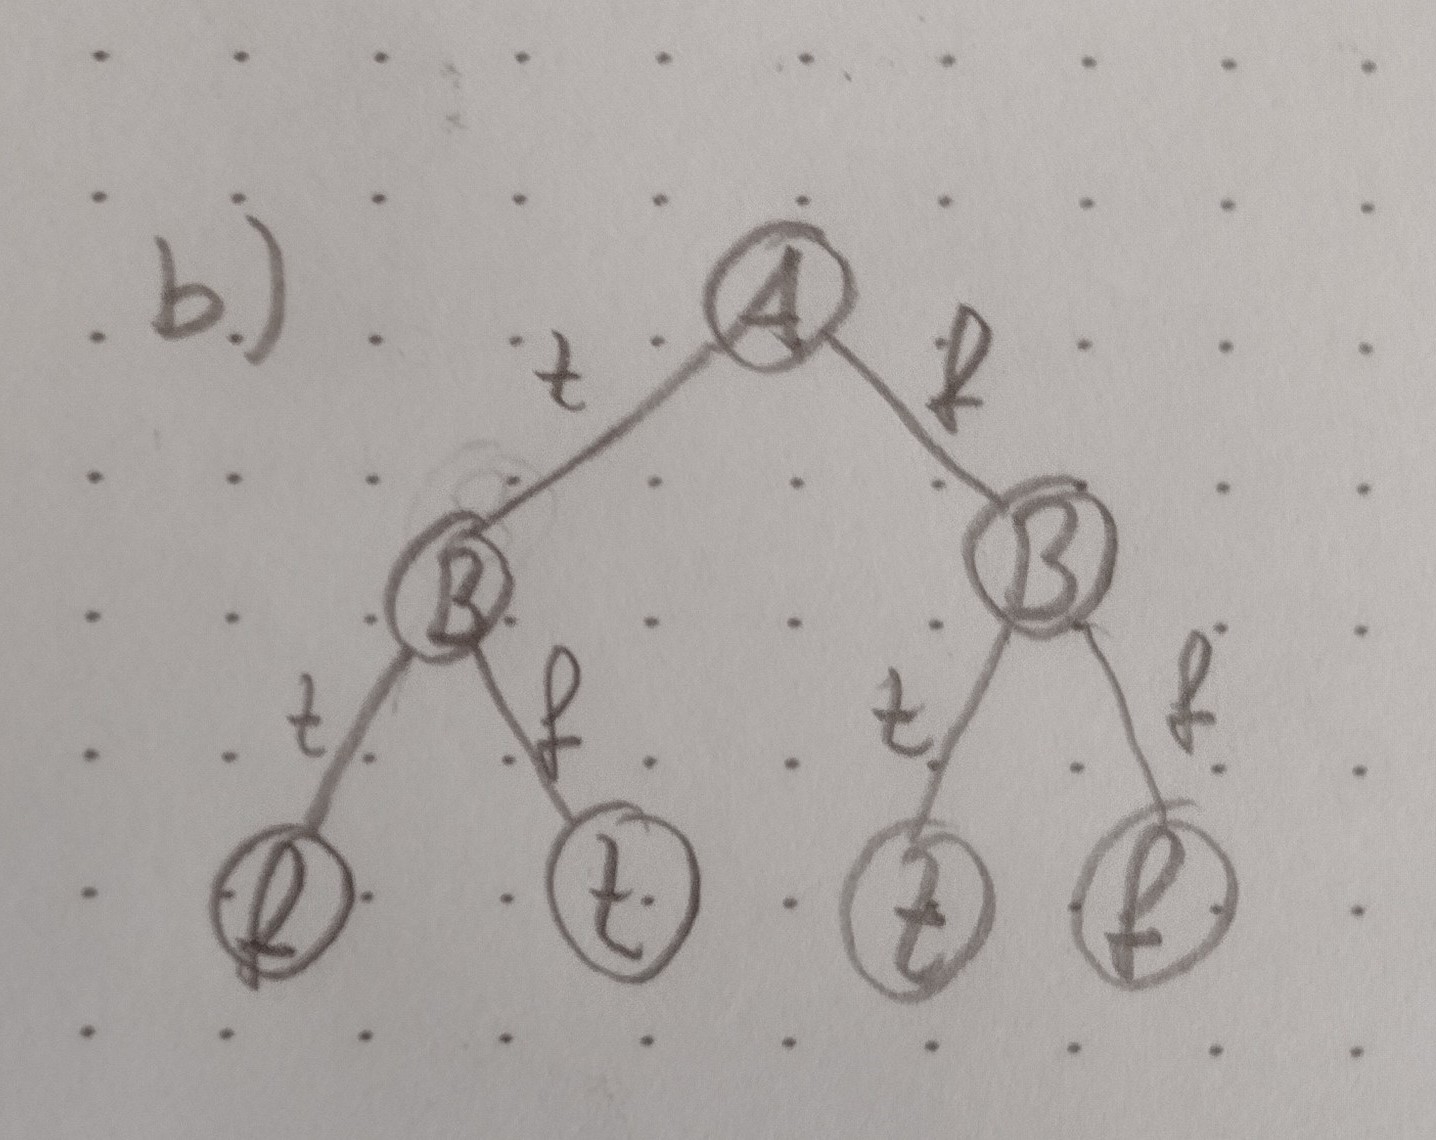 b.)
A
t f
B B
t f t f
f t t f